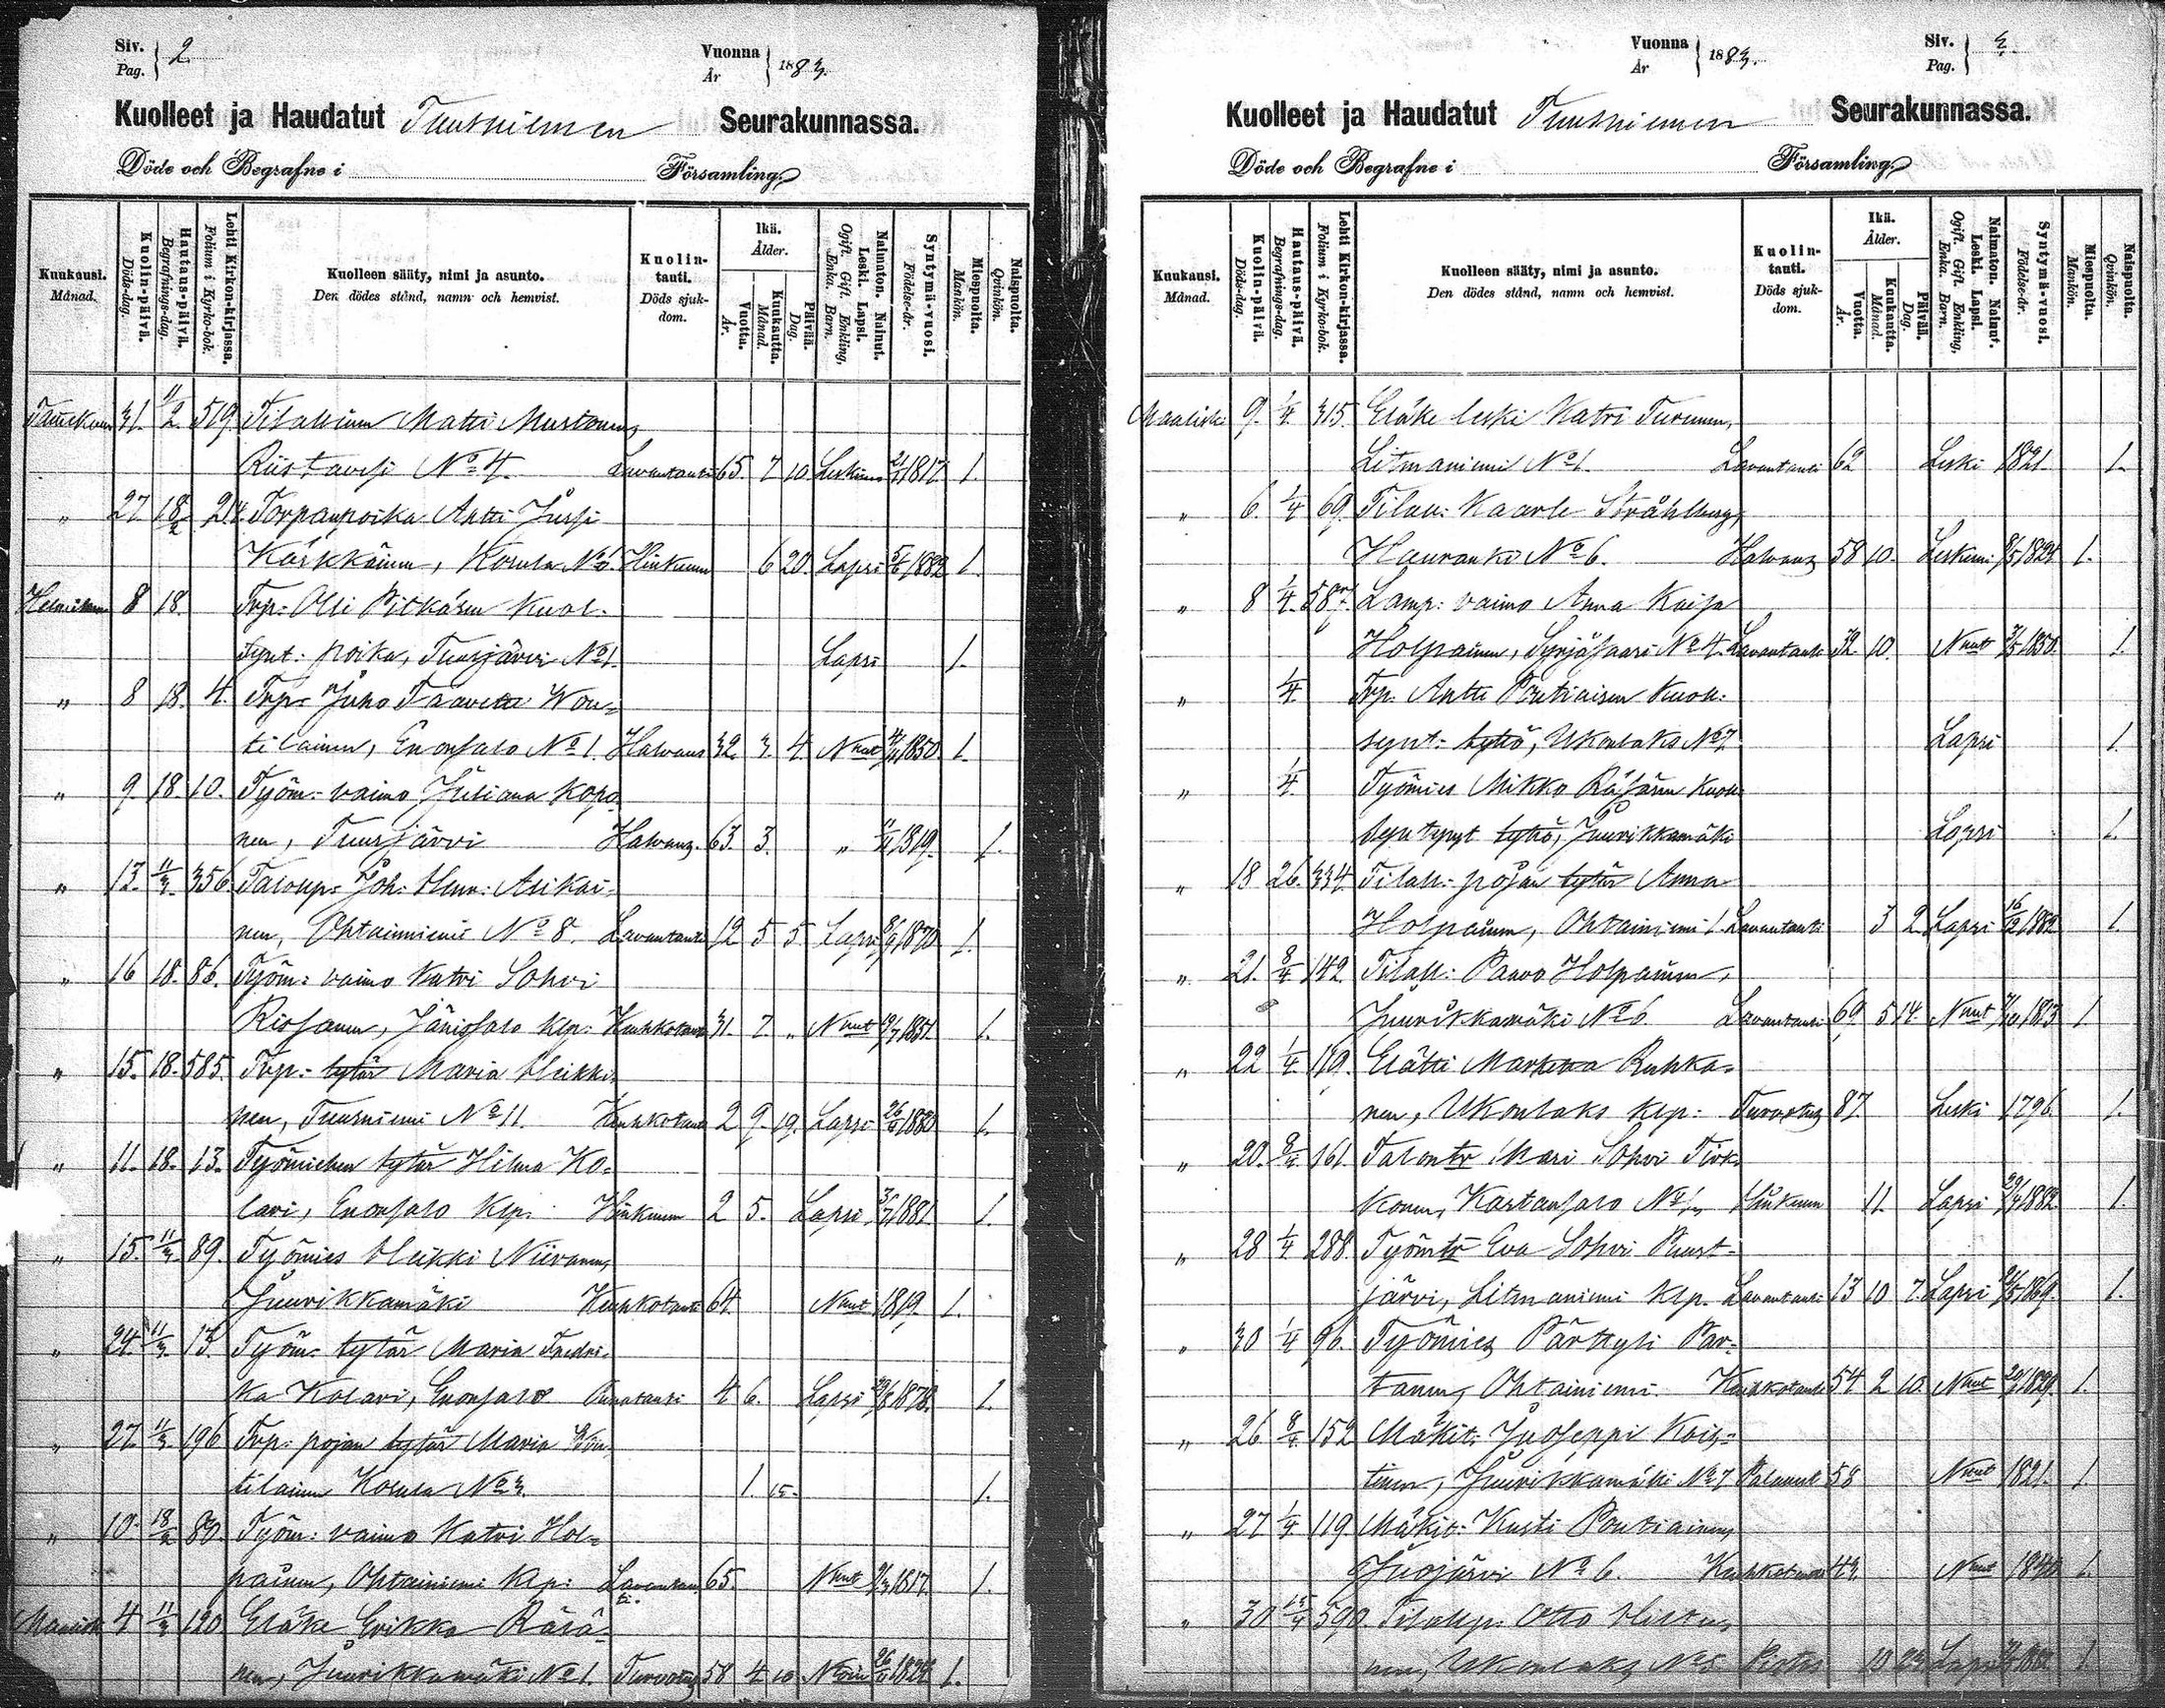 Siv. Pag. 2.
Vuonna År 1883.
Kuolleet ja Haudatut Tuusniemen Seurakunnassa.
Döde och Begrafne i Församling.
Kuukausi. Månad.
Kuolin-päivä. Döds-dag.
Hautaus-päivä. Begrafnings-dag.
Lehti Kirkon-kirjassa. Folium i Kyrko-bok.
Kuolleen sääty, nimi ja asunto. Den dödes stånd, namn och hemvist.
Kuolin-tauti. Döds sjuk-dom.
Ikä. Ålder.
Vuotta. År.
Kuukautta. Månad.
Päivää. Dag.
Naimaton. Nainut. Leski. Lapsi. Ogift. Gift. Enkling. Enka. Barn.
Syntymä-vuosi. Födelse-år.
Miespuolta. Mankön.
Naispuolta. Qvinkön.
31. 11/2 519 Matti Mustonen,
Riistavesi No 4. Lavantauti 65. 7 10 1817. 1.
" 27. 18/2 214. Torpanpoika Antti Jussi
Kärkkäinen, Kosula Hinkuun 6 20. Lapsi 1882 1.
Helmikuun 8 18. Trp: Olli Pitkäsen Kuol.
synt: poika, Tuusjärvi No 1. Lapsi 1.
" 8 18. 4. Trp: Juho Taavetti Vou-
tilainen, Enonsalo No 1. Halvaus 32. 3. 4. Nnut 1850. 1.
" 9. 18. 10. Työm: vaimo Juliana Kopo-
nen, Tuusjärvi Halvaus. 63. 3. " 1819. 1.
" 13. 11/3. 356. Joh: Henr: Asikai-
nen, Ohtaanniemi No 8. Lavantauti 12 5 5. Lapsi 1870 1.
" 16 18. 86. Työm: vaimo Katri Sohvi
Jänissalo klp: Keuhkotauti 31. 7. " Nnut 1851. 1.
" 15. 18. 585. Trp: tytär Maria Heikki-
nen, Tuusniemi No 11. Keuhkotauti 2 9. 19. Lapsi 1880 1.
" 11. 18. 13. Työmiehen tytär Hilma Ko-
lari, Enonsalo klp. Hinkuun 2 5. Lapsi 1881 1.
" 15. 11/3. 89. Työmies Heikki Niiranen,
Juurikkamäki Keuhkotauti 64. Nnut 1819. 1.
" 24. 11/3. 13. Työm: tytär Maria Fredri-
ka Kolari, Enonsalo Punatauti 4 6. Lapsi 1878. 1.
" 27. 11/3. 196 Trp: pojan tytär Maria Vou-
tilainen Kosula No 3. 1. 15. 1.
" 10. 18/2 80. Työm: vaimo Katri Hol-
painen, Ohtainiemi klp: Lavantauti. 65. Nnut 1817. 1.
Maalisk 4 11/3 120 Eläke Erikka Räsä-
nen, Juurikkamäki No 1. Turvotus 58 4 10 1824. 1.
Vuonna År 1883.
Siv. Pag. 3.
Kuolleet ja Haudatut Tuusniemen Seurakunnassa.
Döde och Begrafne i Församling.
Kuukausi. Månad.
Kuolin-päivä. Döds-dag.
Hautaus-päivä. Begrafnings-dag.
Lehti Kirkon-kirjassa. Folium i Kyrko-bok.
Kuolleen sääty, nimi ja asunto. Den dödes stånd, namn och hemvist.
Kuolin-tauti. Döds sjuk-dom.
Ikä. Ålder.
Vuotta. År.
Kuukautta. Månad.
Päivää. Dag.
Naimaton. Nainut. Leski. Lapsi. Ogift. Gift. Enkling, Enka. Barn.
Syntymä-vuosi. Födelse-år.
Miespuolta. Mankön.
Naispuolta. Qvinkön.
Maalisk 9. 1/4 315. Eläke leski Katri Turunen,
Litmaniemi No 1. Lavantauti 62 Leski 1821. 1.
" 6. 1/4 69. Tilall: Kaarle Ståhlberg,
Hauranki No 6. Halvaus 58 10. 1824 1.
" 8 1/4. 587. Lamp: vaimo Anna Kaisa
Holpainen, Syrjäsaari No 4. Lavantauti 32. 10. Nnut 1850. 1.
" 1/4. Trp. Antti Poutiaisen Kuoll:
synt: tyttö, Ukonlaks No 7. Lapsi 1.
" 1/4. Työmies Mikko Räsäsen Kuoll:
syntynyt tyttö, Juurikkamäki Lapsi 1.
" 18 26. 334. Tilall: pojan tytär Anna
Holpainen, Ohtainiemi 1. Lavantauti 3 2 Lapsi 16/12 1882 1.
" 21. 8/4 142 Tilall: Paavo Holpainen,
Juurikkamäki No 6. Lavantauti 69 5 14. Nnut 1813 1
" 22 1/4. 119. Elätti Marketta Ruhka-
nen, Ukonlaks klp: Turvotus 87 Leski 1796. 1.
" 20. 8/4 161. Talontr Mari Sohvi Tirk-
konen, Kartansalo No 1, Hinkuun 11. Lapsi 1882. 1.
" 28 1/4 288. Työmtr Eva Sohvi Ruut-
järvi, Litmaniemi klp. Lavantauti 13 10 7. Lapsi 1869. 1.
" 30 1/4 96. Työmies Pärttyli Par-
tanen, Ohtainiemi. Keuhkotauti 54 2 10. Nnut 1829. 1.
" 26 8/4 152 Mäkit: Juoseppi Kois-
tinen, Juurikkamäki No 7 58 Nnut 1821. 1.
" 27 1/4 119. Mäkit: Kusti Poutiainen,
Juojärvi No 6. Keuhkotauti 43. Nnut 1840 1.
" 30 15/4 590. Otto Heiska-
nen, Ukonlaks No 5 10 23 Lapsi 1882 1.